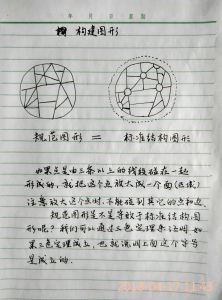 年 月 日 星期
构建图形
规范图形 = 标准结构图形
如果点是由三条以上的线段碰在一起
形成的，就把这个点放大成一个面(区域)
注意放大这个点时，不能碰到其它的点和边。
规范图形是不是等效于标准结构图
形呢？我们可以通过三色定理来证明如
果三色定理成立，也就说明上面这个等号
是成立的。